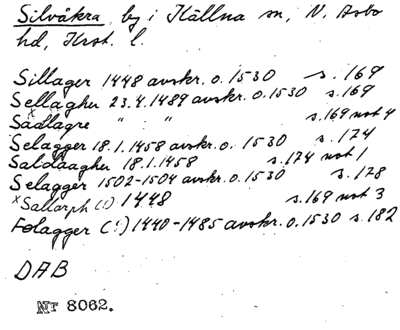 Silvåkra, by i Källna sn, N. Åsbo
hd, Krst. l.
Sillager 1448 avskr. o. 1530 s. 169
Sellagher 23.4.1489 avskr. o. 1530 s. 169
Sadlagre " " " s. 169 not 4
Selagger 18.1.1458 avskr. o. 1530 s. 174
Saldaagher 18.1.1458 s. 174 not 1
Selagger 1502-1504 avskr. o. 1530 s. 178
x Sallarph (!) 1448 s. 169 not 3
Følagger (!) 1440-1485 avskr. o. 1530 s. 182
DAB
Nr 8062.